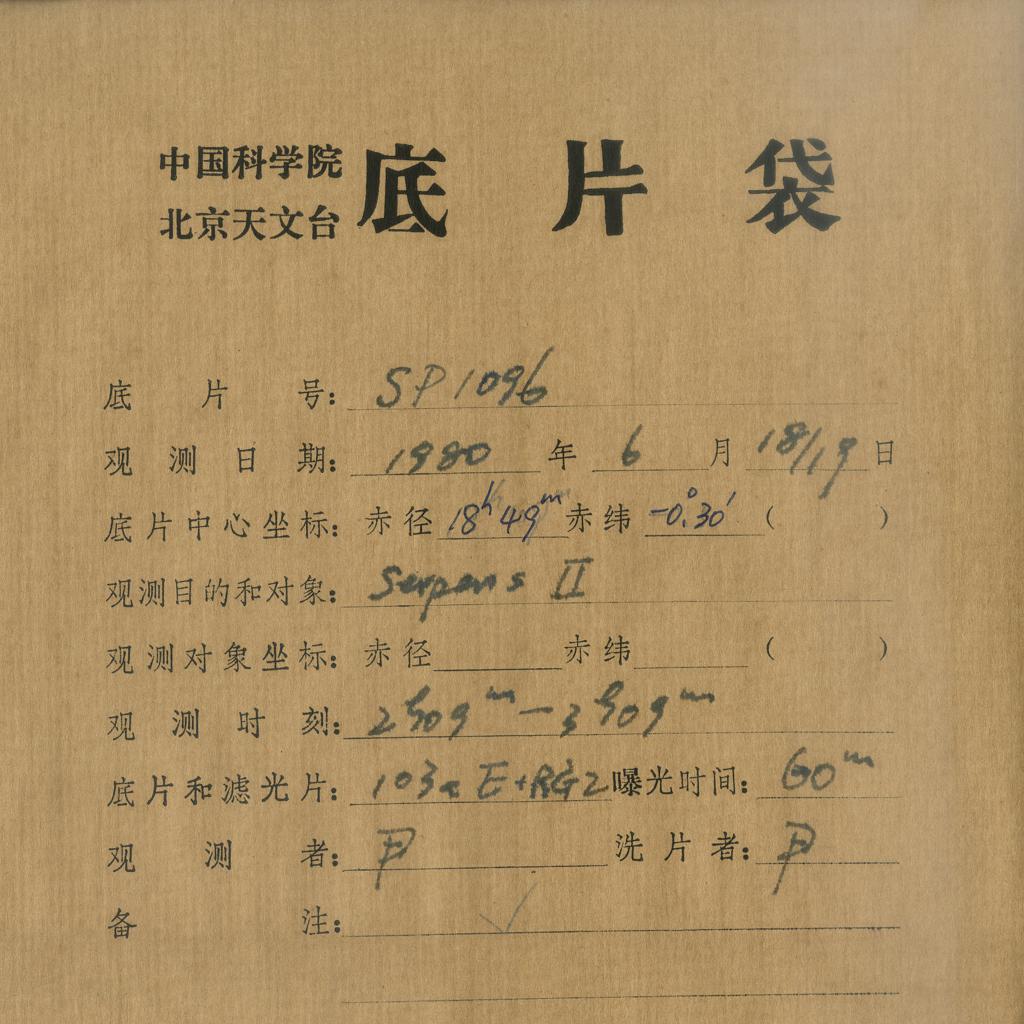 中国科学院
北京天文台
底片袋
底片号: SP1096
观测日期: 1980年6月18/19日
底片中心坐标: 赤径18h49m赤纬-0°.30′( )
观测目的和对象: Serpens II
观测对象坐标: 赤径 赤纬 ( )
观测时刻: 2h09m-3h09m
底片和滤光片: 103aE+RG2 曝光时间: 60m
观测者: 尹 洗片者: 尹
备注: ✓